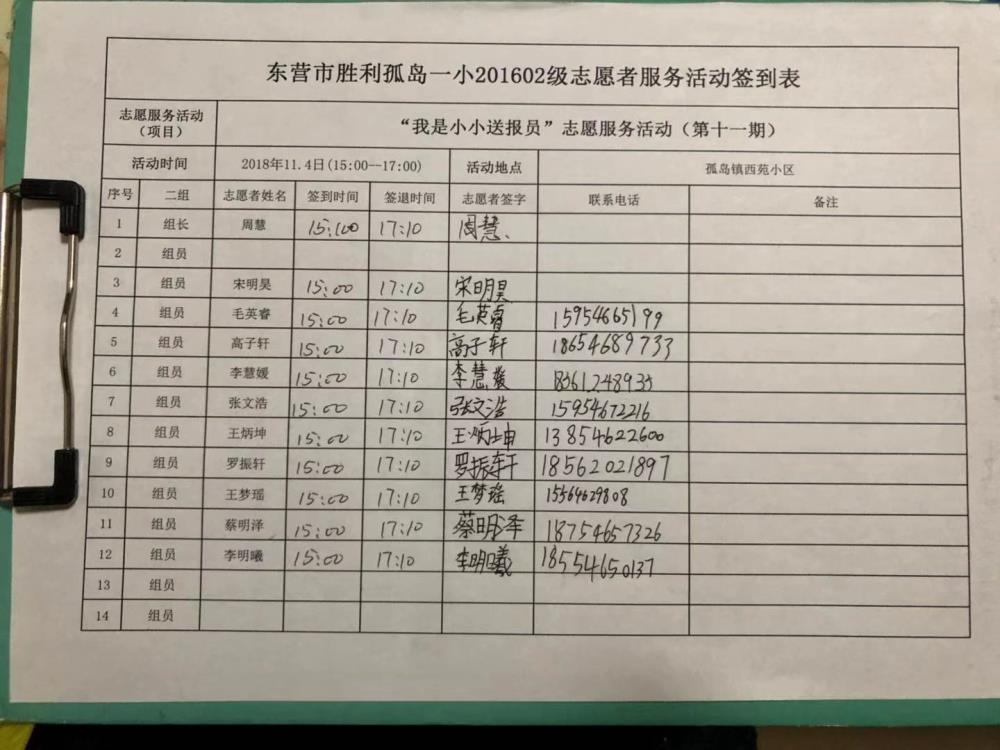 东营市胜利孤岛一小201602级志愿者服务活动签到表
志愿服务活动（项目） “我是小小送报员”志愿服务活动（第十一期）
活动时间 2018年11.4日(15:00--17:00) 活动地点 孤岛镇西苑小区
序号 二组 志愿者姓名 签到时间 签退时间 志愿者签字 联系电话 备注
1 组长 周慧 15:00 17:10 周慧、
2 组员
3 组员 宋明昊 15:00 17:10 宋明昊
4 组员 毛英睿 15:00 17:10 毛英睿 15954665199
5 组员 高子轩 15:00 17:10 高子轩 18654689733
6 组员 李慧媛 15:00 17:10 李慧媛 18361248933
7 组员 张文浩 15:00 17:10 张文浩 15954672216
8 组员 王炳坤 15:00 17:10 王炳坤 13854622600
9 组员 罗振轩 15:00 17:10 罗振轩 18562021897
10 组员 王梦瑶 15:00 17:10 王梦瑶 15564629808
11 组员 蔡明泽 15:00 17:10 蔡明泽 18754657326
12 组员 李明曦 15:00 17:10 李明曦 18554650137
13 组员
14 组员